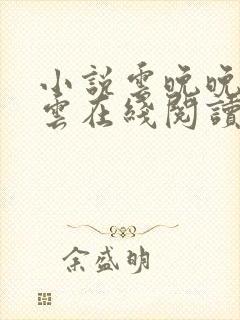 小説雲晚晚
雲在綫閱讀
余盛明